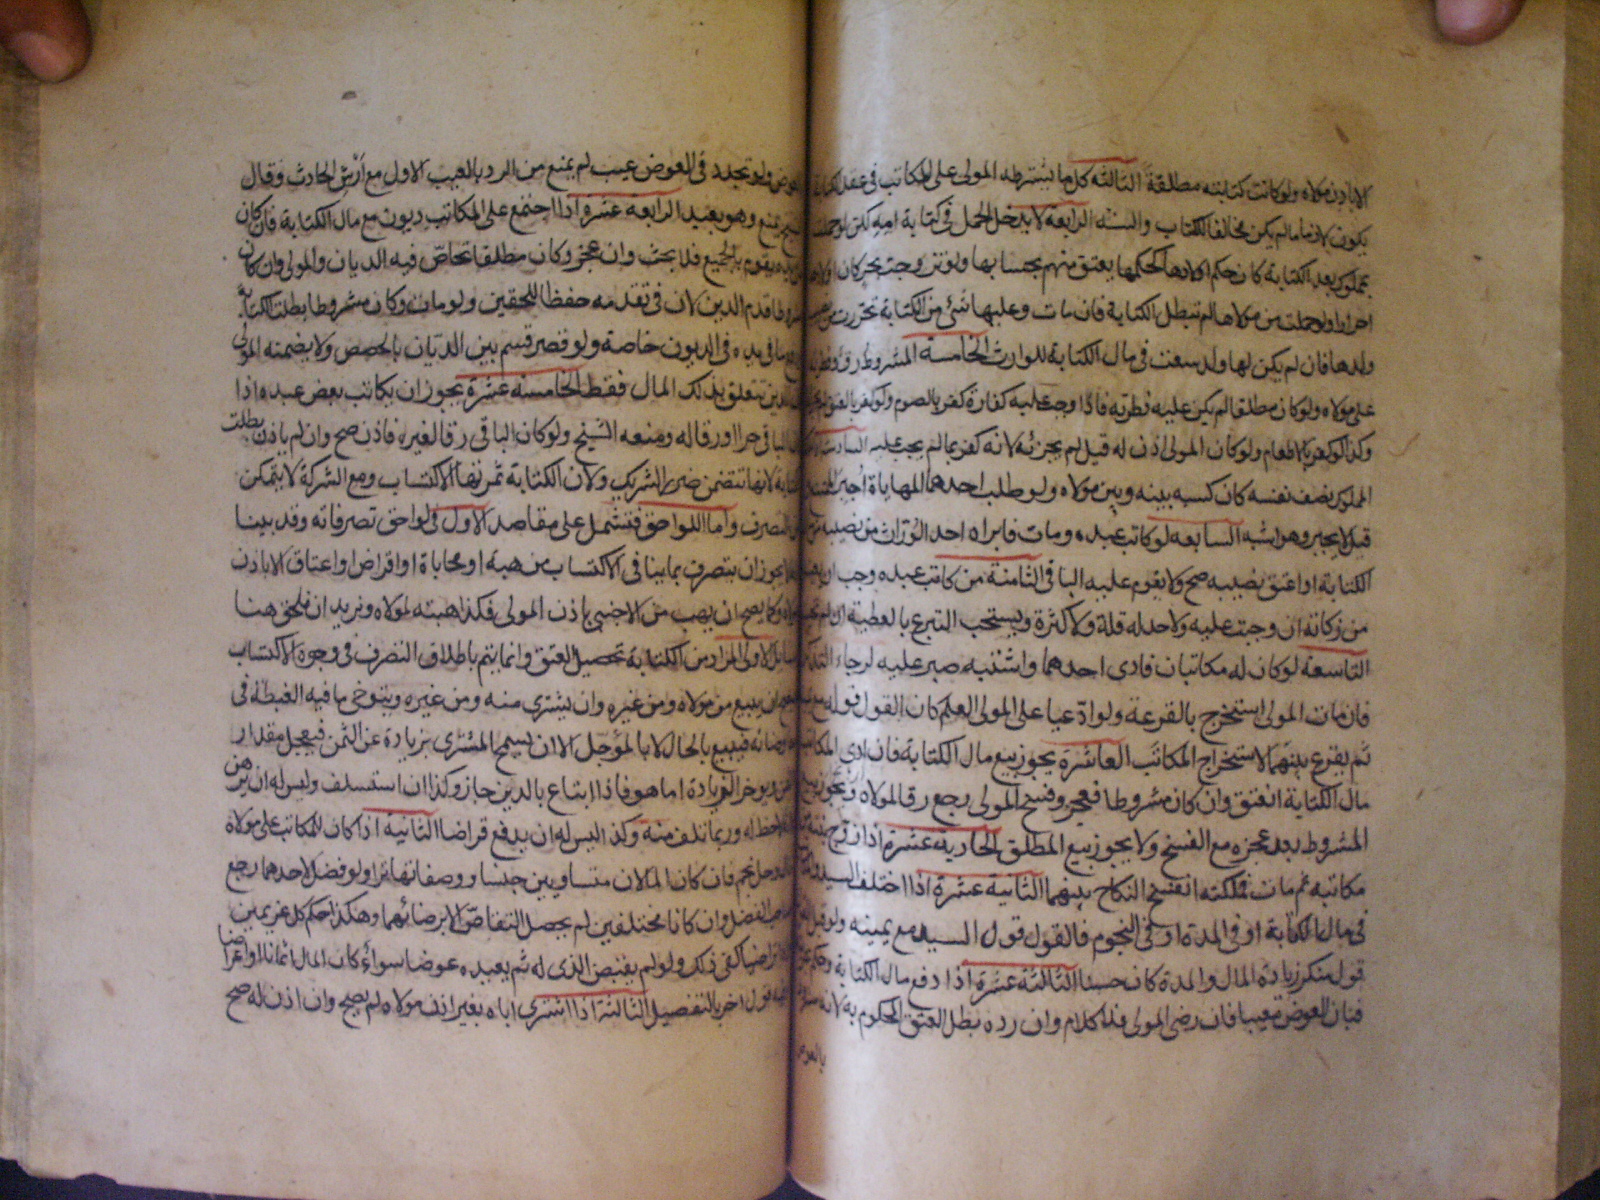 الا باذن مولاه ولو كانت كتابته مطلقة الثالثة كل ما يشترطه المولى على المكاتب في عقد الكتابة
يكون لازما ما لم يكن مخالفا للكتاب والسنة الرابعة لا يدخل الحمل في كتابة امه لكن لو حملت
بمملوك بعد الكتابة كان حكم اولادها كحكمها يعتق منهم بحسابها ولو تزوجت بحر كان اولادها
احرارا ولو حملت من مولاها لم تبطل الكتابة فان مات وعليها شئ من الكتابة تحررت من
ولدها فان لم يكن لها ولد سعت في مال الكتابة للوارث الخامسة المشروط رق وفطرته
على مولاه ولو كان مطلقا لم يكن عليه فطرته فاذا وجب عليه كفارة كفر بالصوم ولو كفر بالعتق
وكذا لو كفر بالاطعام ولو كان المولى اذن له قيل لم يجزئه لانه كفر بما لم يجب عليه السادسة
المملوك نصف نفسه كان كسبه بينه وبين مولاه ولو طلب احدهما المهاياة اجبر الممتنع
قيل لا يجبر وهو اشبه السابعة لو كاتب عبده ومات فابراه احد الوراث من نصيبه من
الكتابة او اعتق نصيبه صح ولا يقوم عليه الباقي الثامنة من كاتب عبده وجب ان يعينه
من زكاته ان وجبت عليه ولا حد له قلة ولا كثرة ويستحب التبرع بالعطية ان لم تجب
التاسعة لو كان له مكاتبان فادى احدهما واشتبه صبر عليه لرجاء التذكر
فان مات المولى استخرج بالقرعة ولو ادعيا على المولى العلم كان القول قوله مع
ثم يقرع بينهما لاستخراج المكاتب العاشرة يجوز بيع مال الكتابة فان ادى المكاتب
مال الكتابة انعتق وان كان مشروطا فعجز وفسخ المولى رجع رقا لمولاه ويجوز بيع
المشروط بعد عجزه مع الفسخ ولا يجوز بيع المطلق الحادية عشرة اذا زوج بنته
مكاتبه ثم مات فملكته انفسخ النكاح بينهما الثانية عشرة اذا اختلف السيد
في مال الكتابة او في المدة او في النجوم فالقول قول السيد مع يمينه ولو قيل
قول منكر زيادة المال والمدة كان حسنا الثالثة عشرة اذا دفع مال الكتابة وحكم
فبان العوض معيبا فان رضي المولى فلا كلام وان رده بطل العتق المحكوم به لانه
بالعوض
العوض ولو تجدد في العوض عيب لم يمنع من الرد بالعيب الاول مع ارش الحادث وقال
الشيخ يمنع وهو بعيد الرابعة عشرة اذا اجتمع على المكاتب ديون مع مال الكتابة فان كان
يقوم بالجميع فلا بحث وان عجز وكان مطلقا تحاص فيه الديان والمولى وان كان
قدم الدين لان في تقدمه حفظا للحقين ولو مات وكان مشروطا بطلت الكتابة
ما في يده في الديون خاصة ولو قصر قسم بين الديان بالحصص ولا يضمنه المولى
الدين تعلق بذلك المال فقط الخامسة عشرة يجوز ان يكاتب بعض عبده اذا
كان الباقي حرا او رقا له ومنعه الشيخ ولو كان الباقي رقا لغيره فاذن صح وان لم ياذن بطلت
الكتابة لانها تتضمن ضرر الشريك ولان الكتابة ثمرتها الاكتساب ومع الشركة لا يتمكن
التصرف واما اللواحق فتشمل على مقاصد الاول في لواحق تصرفاته وقد بينا
لا يجوز ان يتصرف بما ينافي الاكتساب من هبة او محاباة او اقراض او اعتاق الا باذن
وكما يصح ان يهب من الاجنبي باذن المولى فكذا هبته لمولاه ونريد ان نلحق هنا
مسايل الاولى المراد من الكتابة تحصيل العتق وانما يتم باطلاق التصرف في وجوه الاكتساب
فيصح ان يبيع من مولاه ومن غيره وان يشتري منه ومن غيره ويتوخى ما فيه الغبطة في
معاوضاته فيبيع بالحال لا بالمؤجل الا ان يسمح المشتري بزيادة عن الثمن فيعجل مقدار
الثمن ويؤخر الزيادة اما هو فاذا ابتاع بالدين جاز وكذا ان استسلف وليس له ان يرهن
لاحظ له وربما تلف منه وكذا ليس له ان يدفع قراضا الثانية اذا كان للمكاتب على مولاه
مال وحل نجم فان كان المالان متساويين جنسا ووصفا تهاترا ولو فضل لاحدهما رجع
صاحب الفضل وان كانا مختلفين لم يحصل التقاص الا برضائهما وهكذا حكم كل غريمين
تراضيا كفى ذلك ولو لم يقبض الذي له ثم يعيده عوضا سواء كان المال اثمانا او اعراضا
وفيه قول اخر بالتفصيل الثالثة اذا اشترى اباه بغير اذن مولاه لم يصح وان اذن له صح